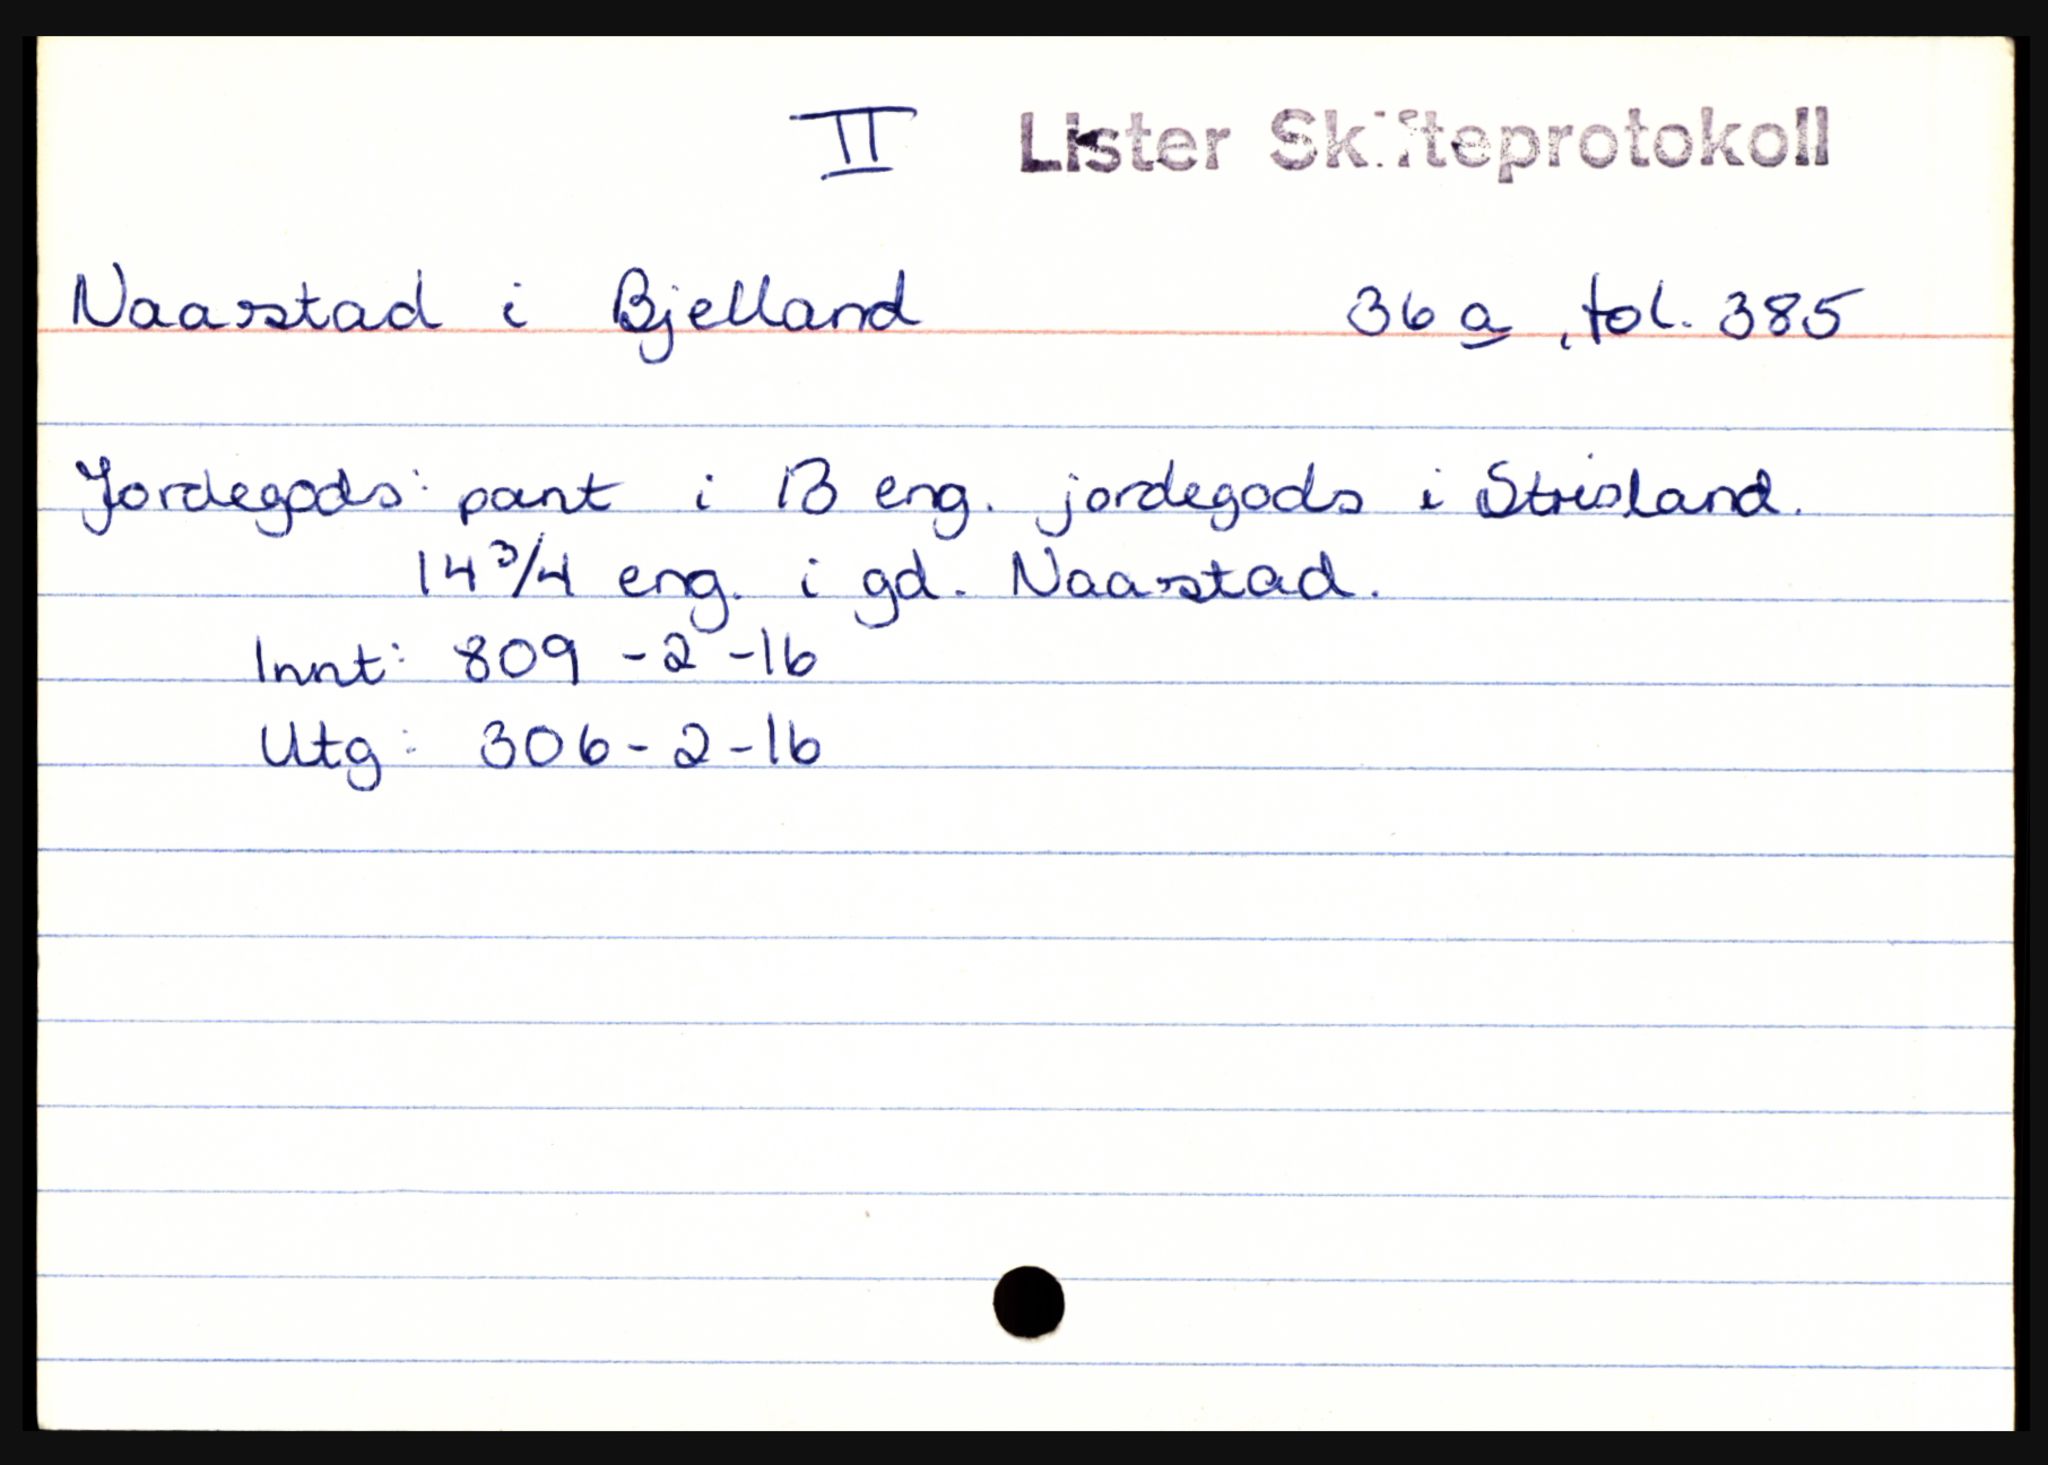 II Lister Skifteprotokoll
Naastad i Bjelland 36 a, fol. 385
Jordegods: pant i 13 eng. jordegods i Strisland.
14 3/4 eng. i gd. Naastad.
Innt: 809 - 2 - 16
Utg: 306 - 2 - 16